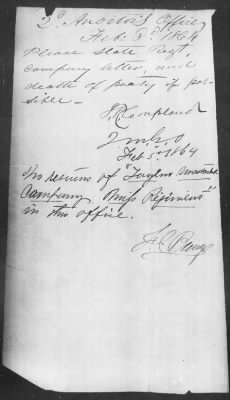 2d Auditor's Office
Feb. 3d 1864
Please State Regt,
Company letter, and
death of party if pos-
sible -
Feb 5th 1864
No returns of "Taylors
Company, Miss
in this office.